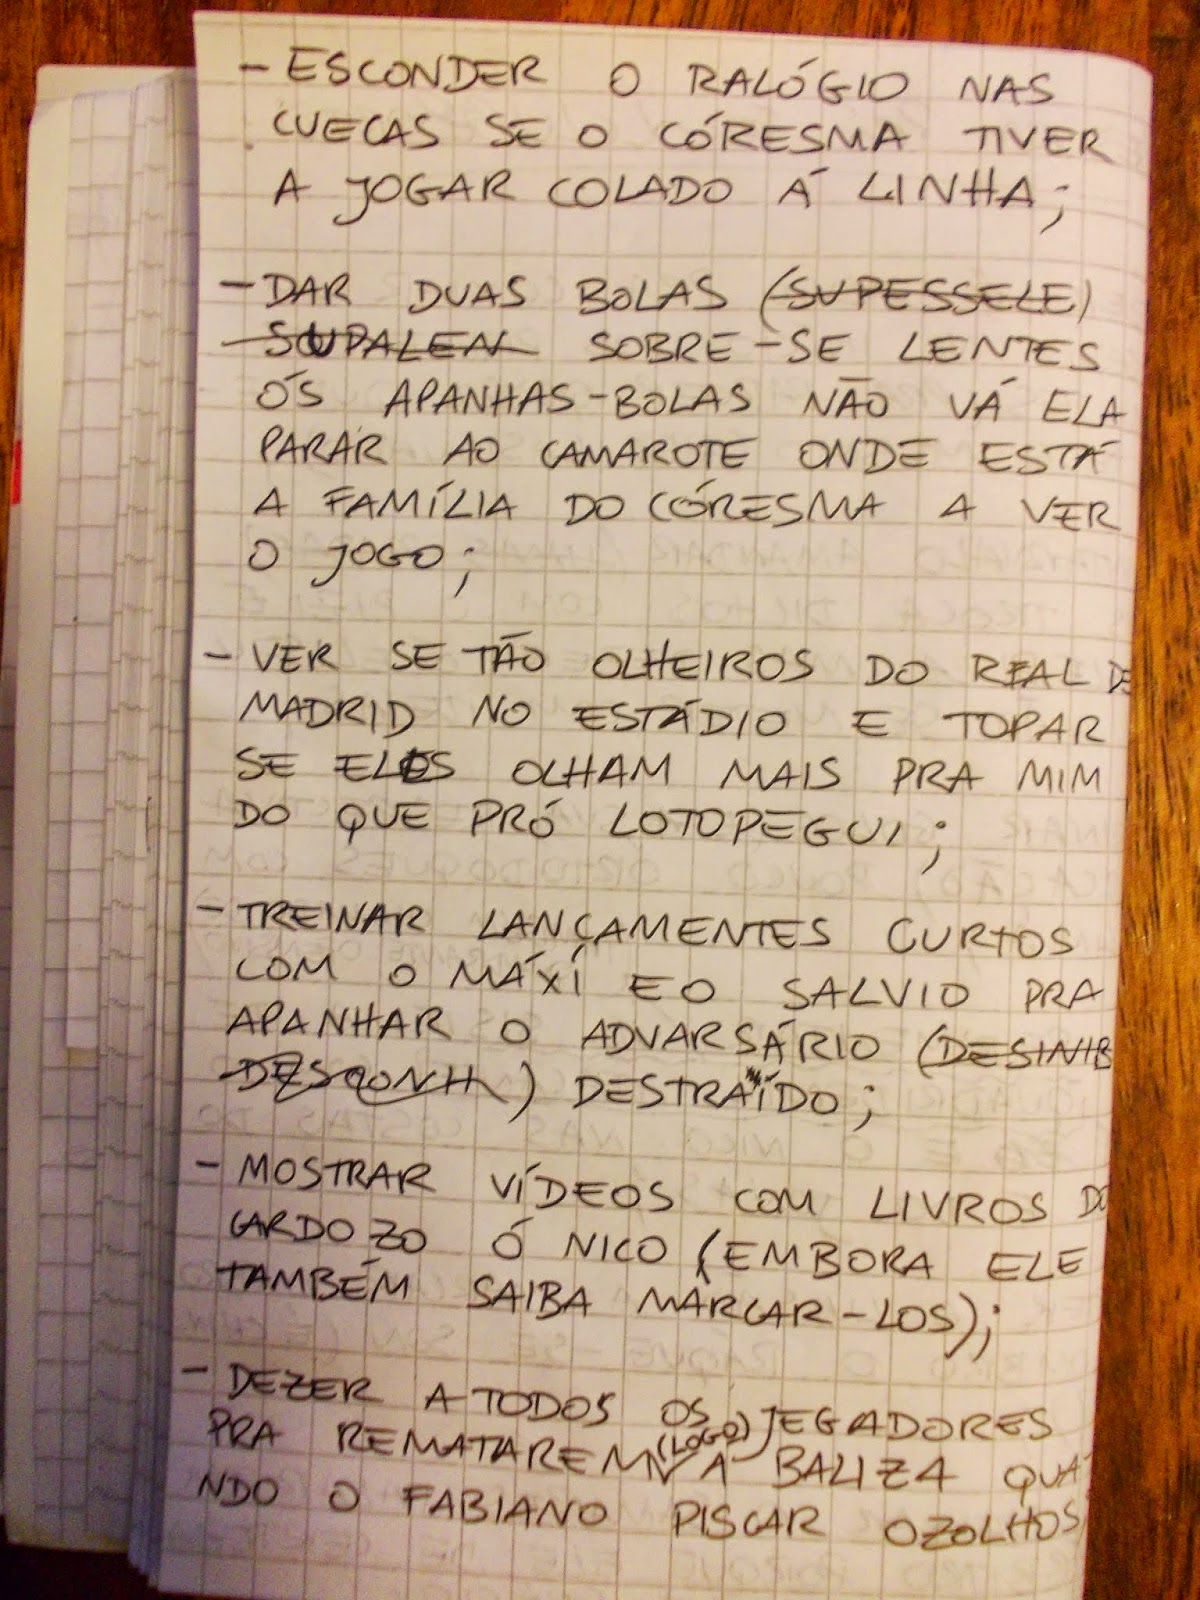 - ESCONDER O RALÓGIO NAS
CUECAS SE O CÓRESMA TIVER
A JOGAR COLADO Á LINHA;
- DAR DUAS BOLAS (SUPESSELE)
SUPALEN SOBRE-SE LENTES
ÓS APANHAS-BOLAS NÃO VÁ ELA
PARAR AO CAMAROTE ONDE ESTÁ
A FAMÍLIA DO CÓRESMA A VER
O JOGO;
- VER SE TÃO OLHEIROS DO REAL DE
MADRID NO ESTÁDIO E TOPAR
SE ELES OLHAM MAIS PRA MIM
DO QUE PRÓ LOTOPEGUI;
- TREINAR LANÇAMENTES CURTOS
COM O MÁXÍ E O SALVIO PRA
APANHAR O ADVARSÁRIO (DESINIB
DESCONH) DESTRAÍDO;
- MOSTRAR VÍDEOS COM LIVROS DO
CARDOZO Ó NICO (EMBORA ELE
TAMBÉM SAIBA MARCAR-LOS);
- DEZER A TODOS OS JEGADORES
PRA REMATAREM (LOGO) Á BALIZA QUA
NDO O FABIANO PISCAR OZOLHOS